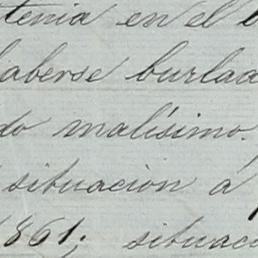 tenia en el
haberse burlad
do malísimo.
situacion á
1861; situaci